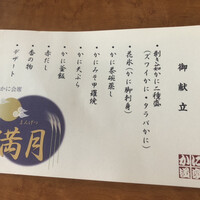 御献立
・剥き茹かに二種盛
(ズワイかに・タラバかに)
・花氷(かに脚刺身)
・かに茶碗蒸し
・かにみそ甲羅焼
・かに天ぷら
・かに釜飯
・赤だし
・香の物
・デザート
かに会席
満月